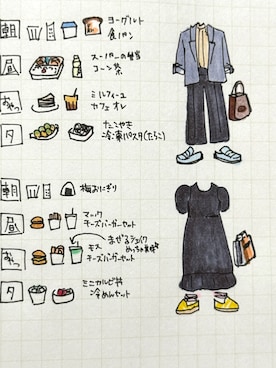 朝 ヨーグルト
食パン
昼 スーパーの弁当
コーン茶
おやつ ミルフィーユ
カフェオレ
夕 たこやき
冷凍パスタ(たらこ)
朝 梅おにぎり
昼 マック
チーズバーガーセット
おやつ モス まぜるシェイク
めっちゃ美味
チーズバーガーセット
夕 ミニカルビ丼
冷めんセット